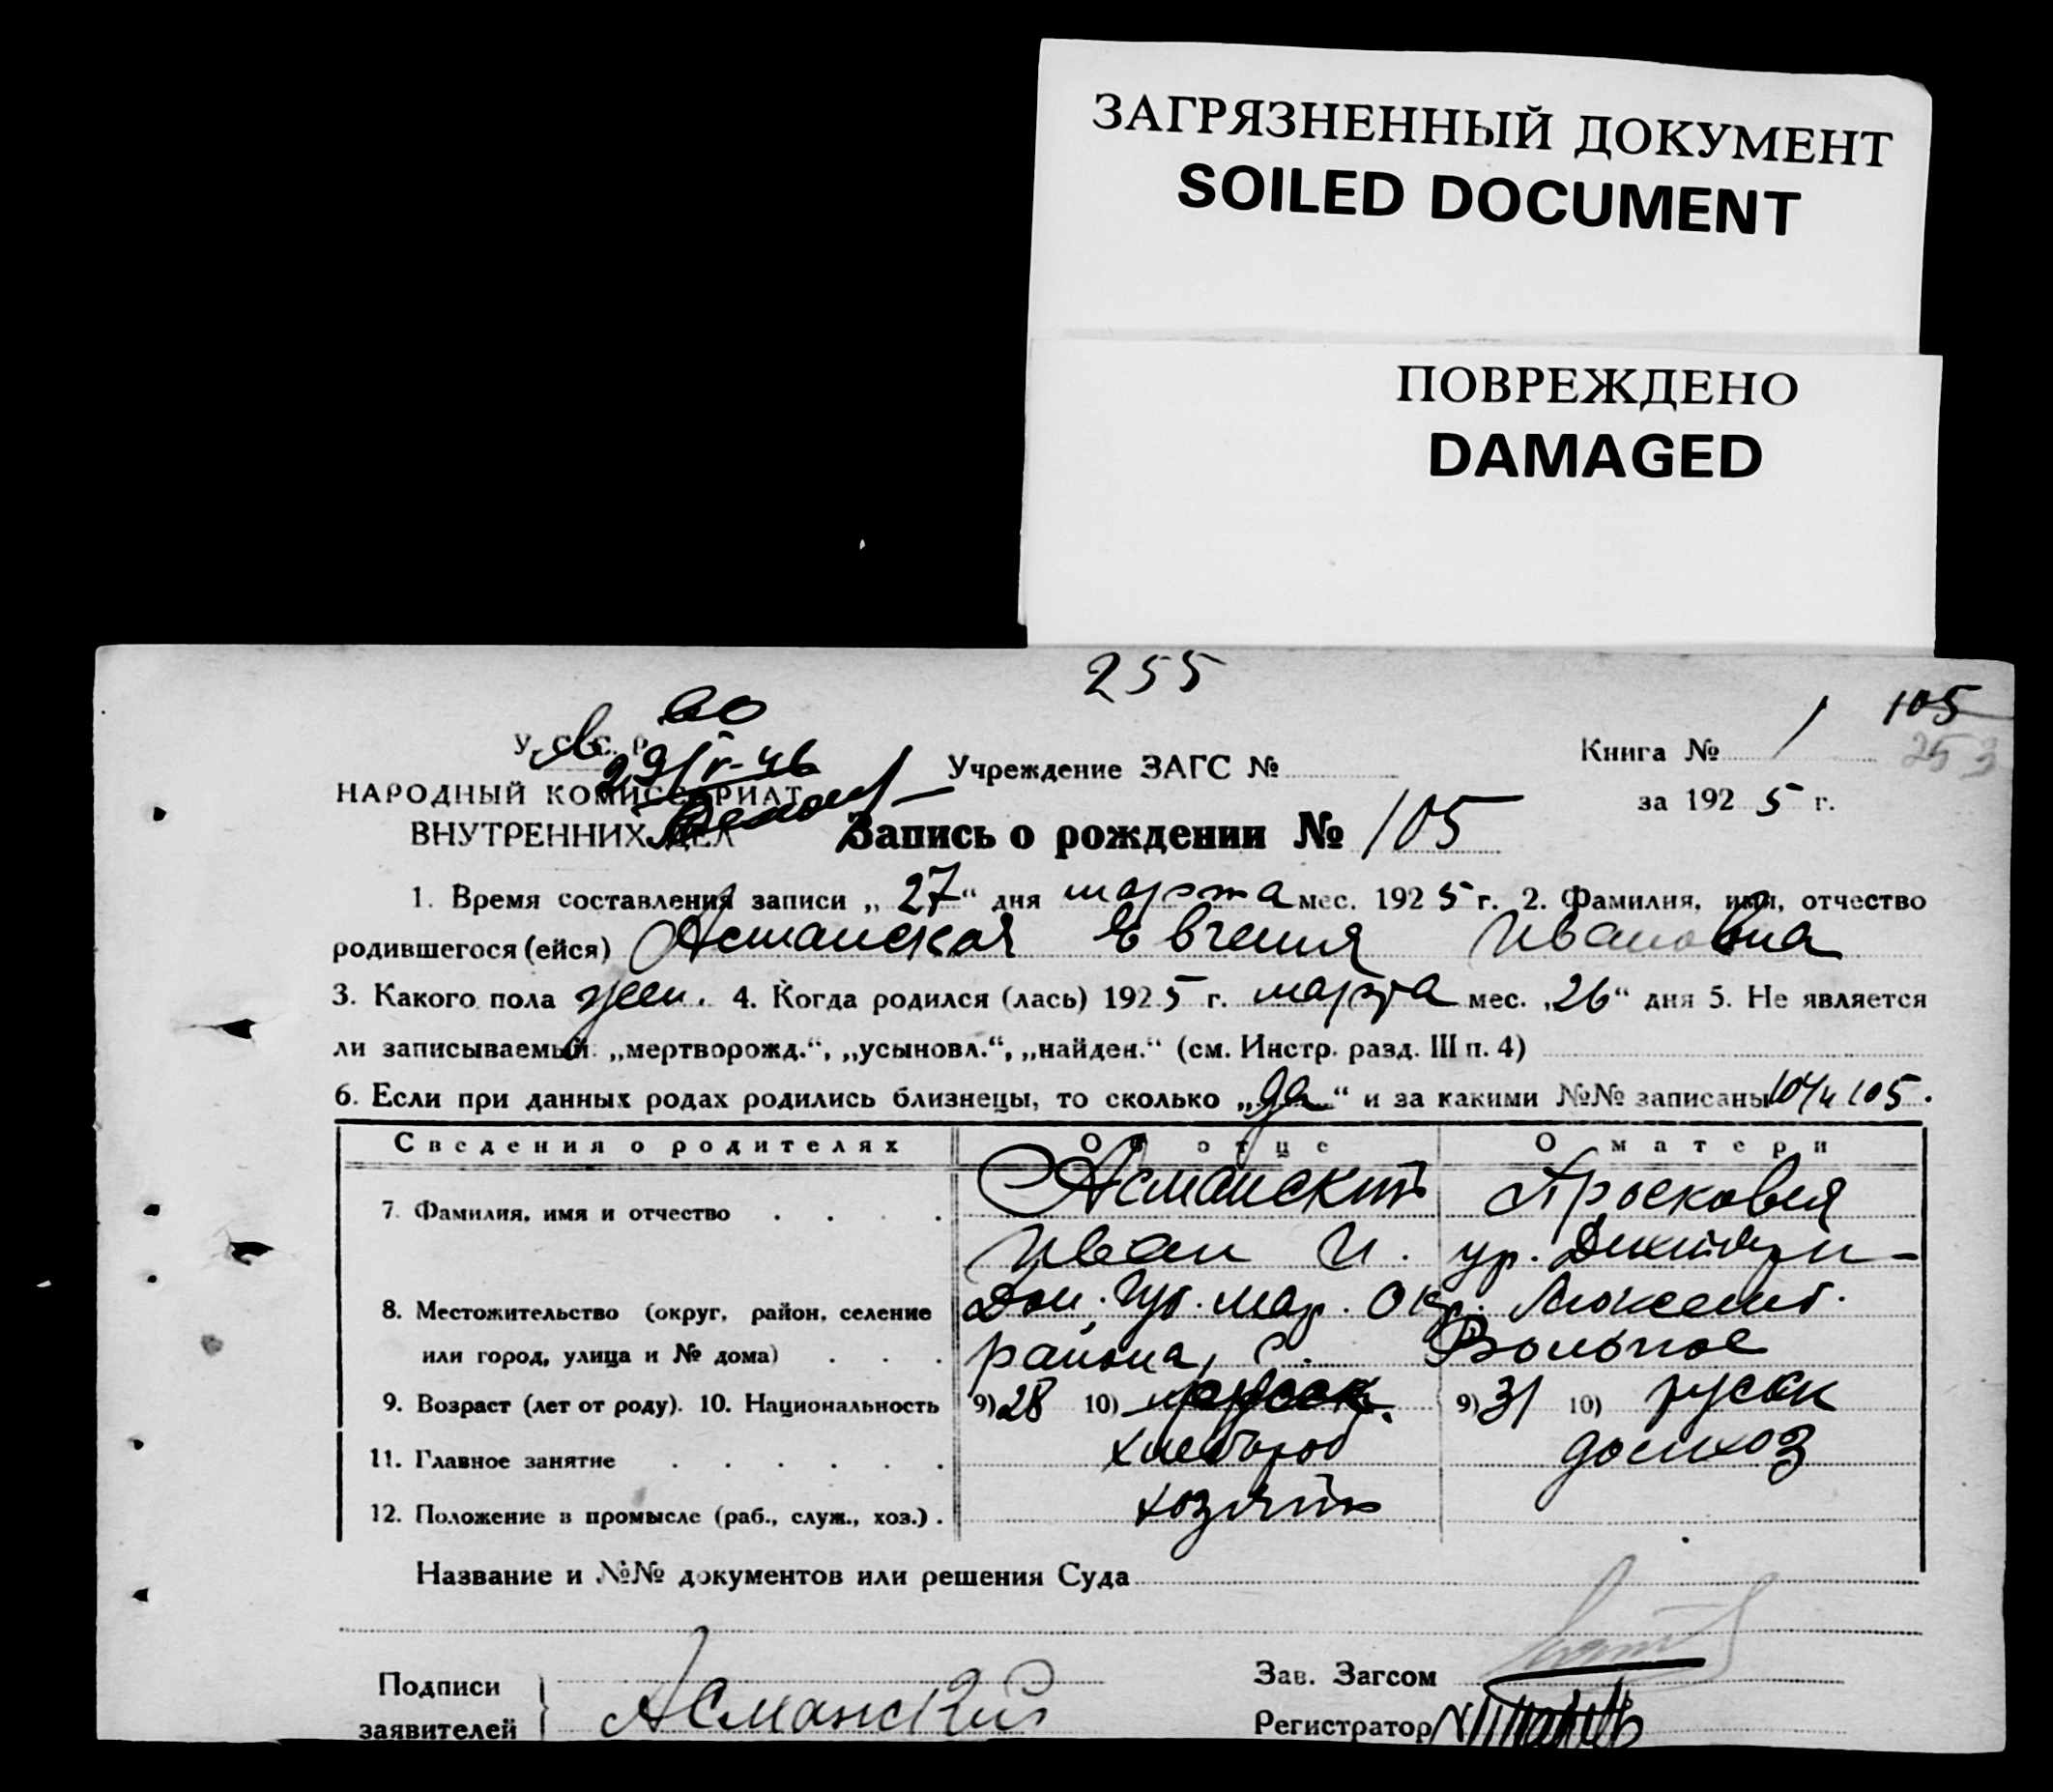 ЗАГРЯЗНЕННЫЙ ДОКУМЕНТ
SOILED DOCUMENT
ПОВРЕЖДЕНО
DAMAGED
255
105
253
У. С. С. Р.
29/V-46
Учреждение ЗАГС №
Книга № 1
НАРОДНЫЙ КОМИССАРИАТ
ВНУТРЕННИХ ДЕЛ
за 1925 г.
Запись о рождении № 105
1. Время составления записи „27“ дня марта мес. 1925 г. 2. Фамилия, имя, отчество
родившегося (ейся) Асманская Евгения Ивановна
3. Какого пола жен. 4. Когда родился (лась) 1925 г. марта мес. „26“ дня 5. Не является
ли записываемый: „мертворожд.“, „усыновл.“, „найден.“ (см. Инстр. разд. III п. 4)
6. Если при данных родах родились близнецы, то сколько „да“ и за какими №№ записаны 104 и 105.
Сведения о родителях
О отце
О матери
7. Фамилия, имя и отчество
Асманский
Иван И.
Прасковия
ур.
8. Местожительство (округ, район, селение
или город, улица и № дома)
Дон. Губ. Мар. Окр.
района, с. Вольное
9. Возраст (лет от роду). 10. Национальность
9) 28 10)
9) 31 10) русск
11. Главное занятие
хлебороб
домхоз
12. Положение в промысле (раб., служ., хоз.)
хозяин
Название и №№ документов или решения Суда
Подписи
заявителей
Асманский
Зав. Загсом
Регистратор